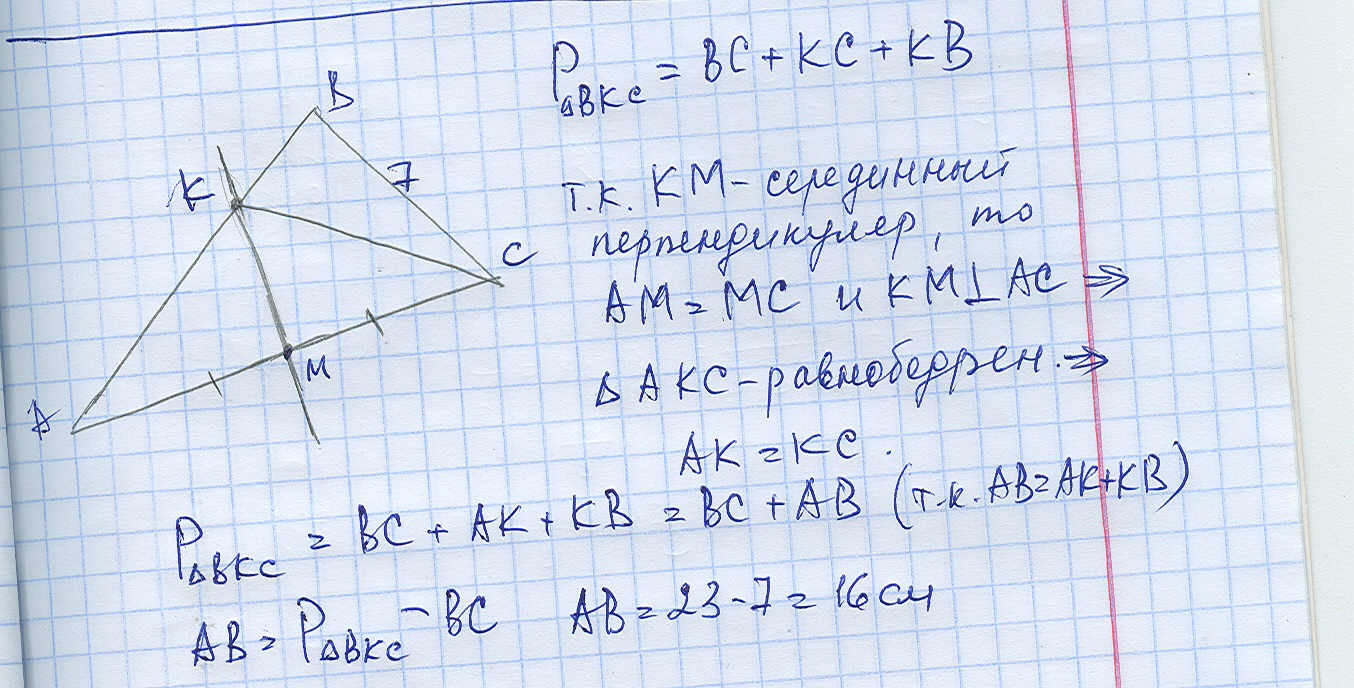 B
K
7
C
M
A
P△BKC = BC + KC + KB
т.к. KM – серединный
перпендикуляр, то
AM = MC и KM⊥AC ⇒
△AKC – равнобедрен. ⇒
AK = KC.
P△BKC = BC + AK + KB = BC + AB (т.к. AB=AK+KB)
AB = P△BKC – BC AB = 23 - 7 = 16 см